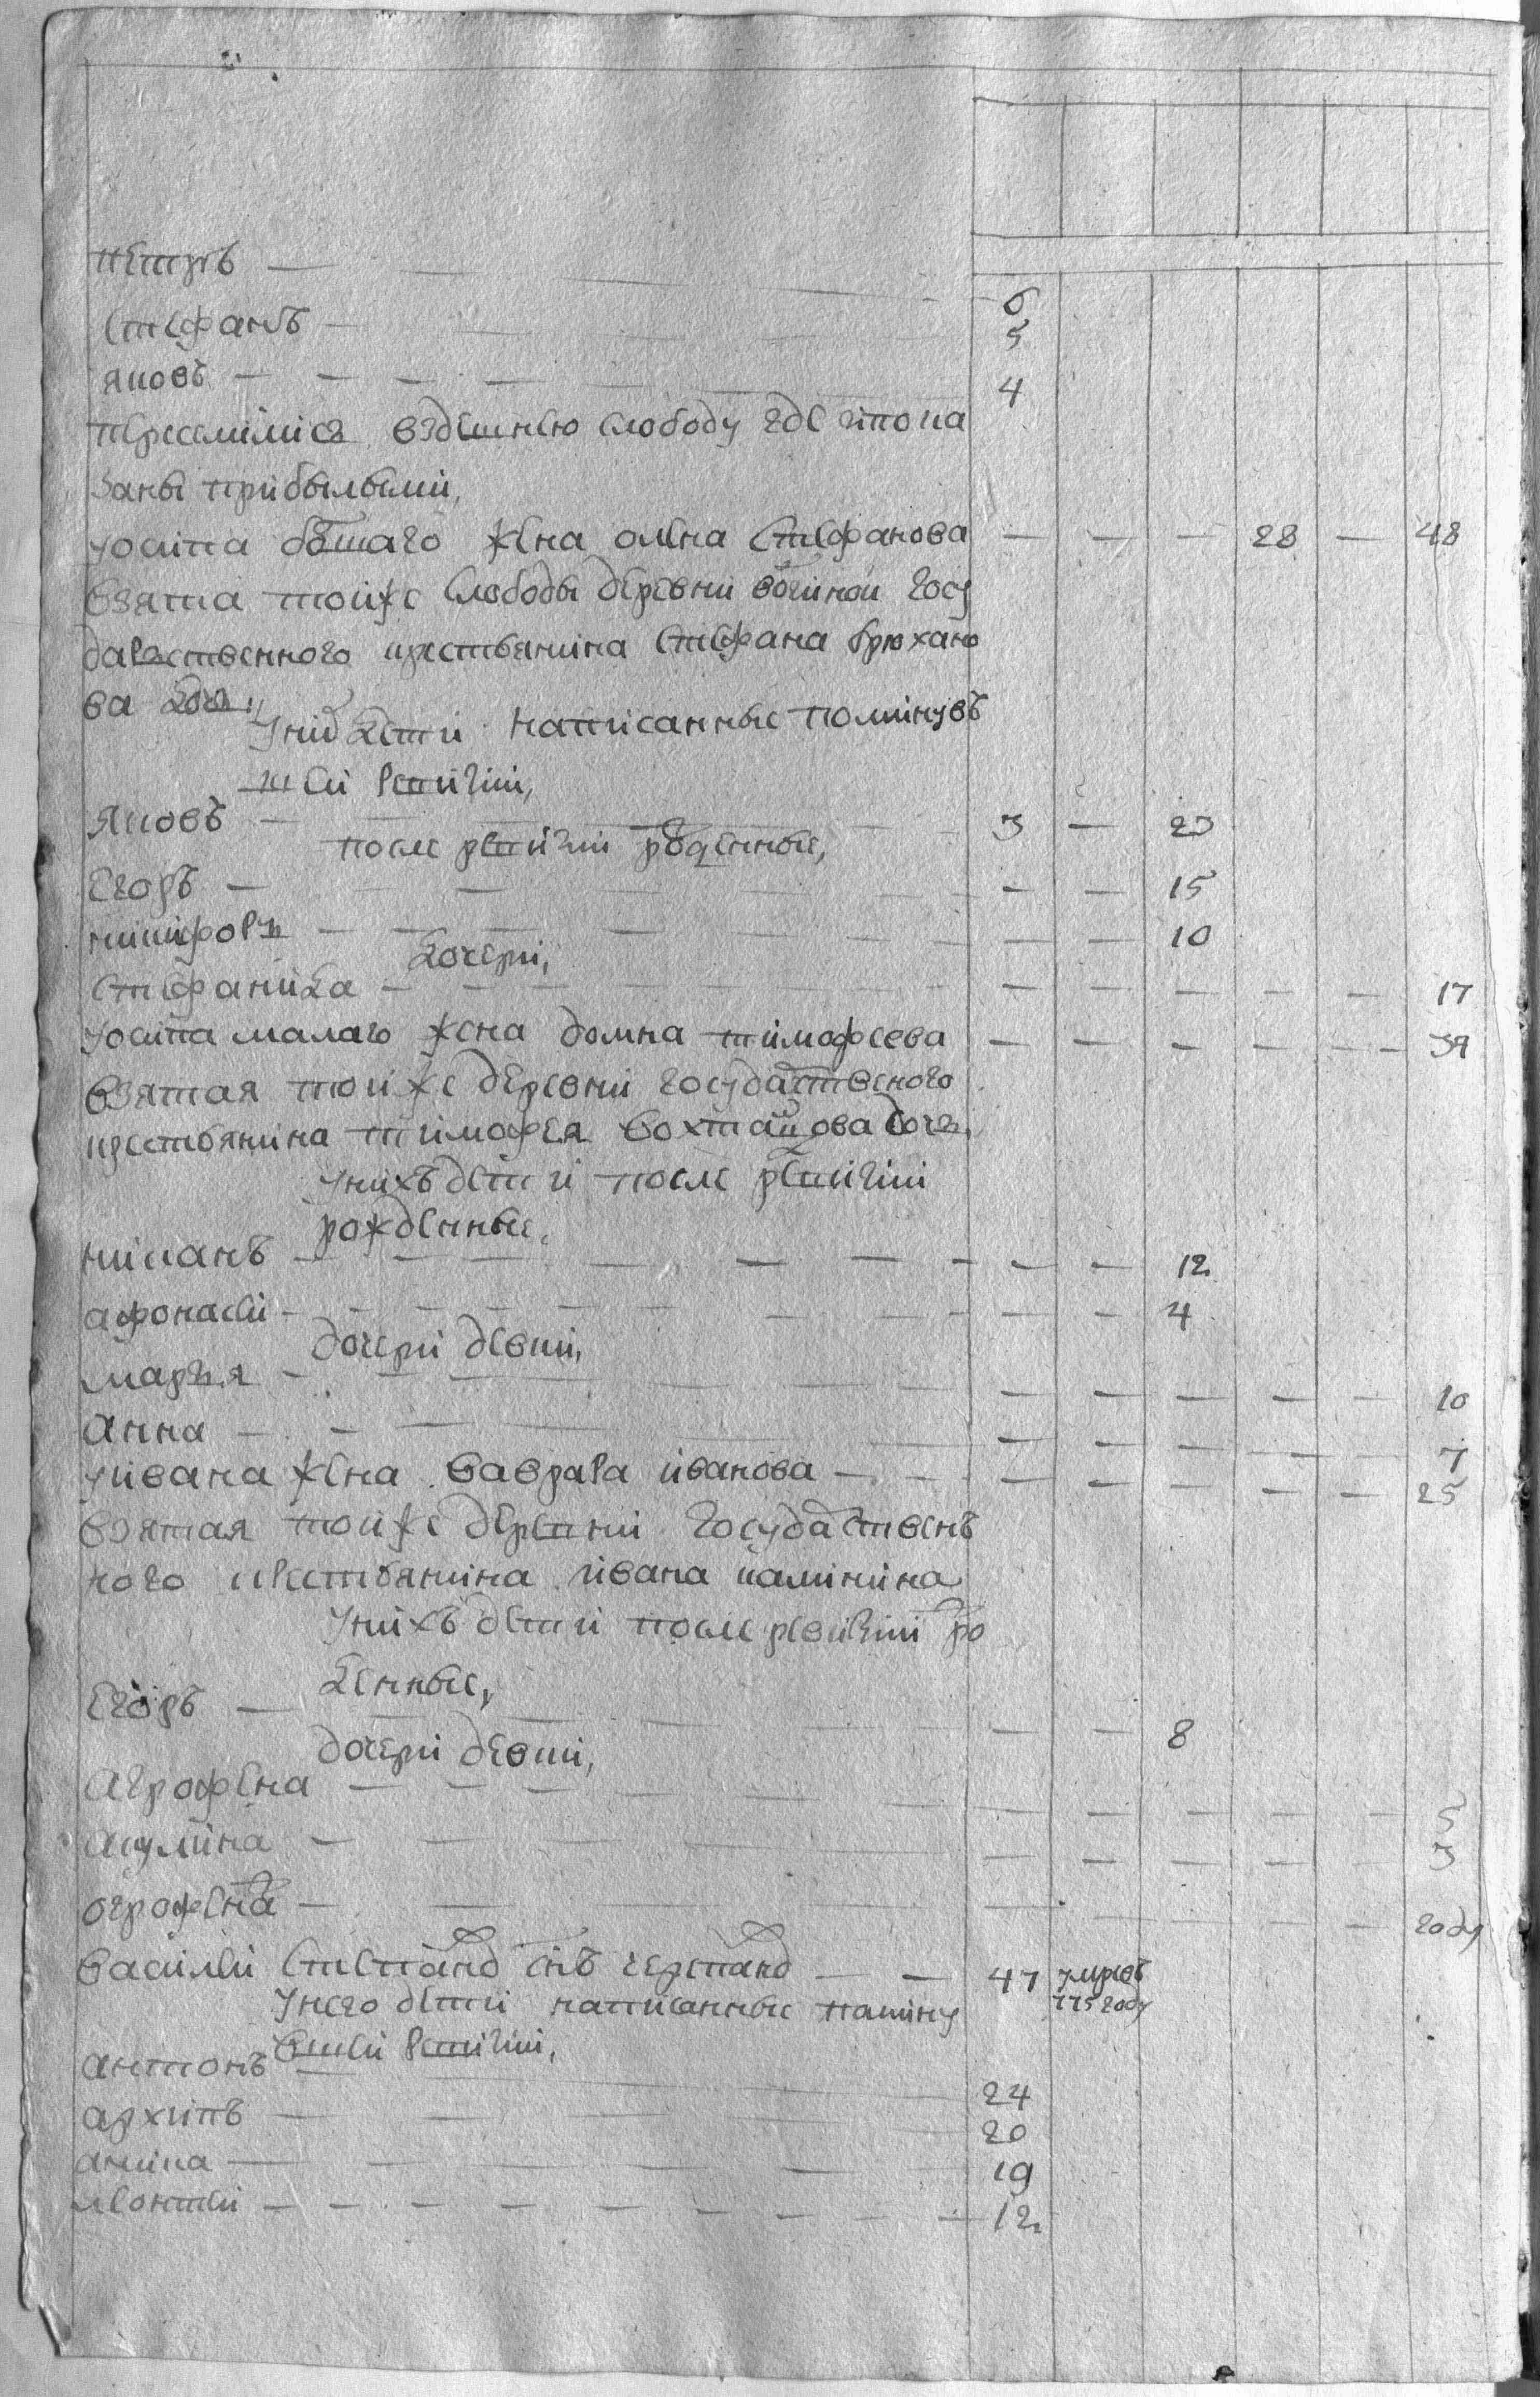 петръ — — — 6
стефанъ — — — 5
яковъ — — — 4
переселился вздешнею слободу где ипока
заны прибылыми,
уосипа болшаго жена олена стефанова — — — 28 — 48
взята тоиже слободы деревни государ
дарственного крестьянина стефана брюхано
ва дочь
униⷯ дети написанные поминув
шеи ревизии,
яковъ — 3 — 23
после ревизии рожденные,
егоръ — — — 15
никифоръ — — — 10
дочери,
стефанида — — — — — 17
уосипа малаго жена домна тимофеева — — — — — 39
взятая тоиже деревни государственого
крестьянина тимофея дочь,
унихъ дети после ревизии
рожденные,
никанъ — — — 12
афонасеи — — — 4
дочери девки,
марья — — — — — 10
анна — — — — — 7
уивана жена варвара иванова — — — — — 25
взятая тоиже деревни государственъ
ного крестьянина ивана калинина
унихъ дети после ревизии ро
денные,
егоръ — — — 8
дочери девки,
агрофена — — — — — 5
акулина — — — — — 3
огрофена — — — — — году
василеи степановъ снъ черепановъ — — 47 умревъ
775 году
унего дети написанные помину
вшеи ревизии,
антонъ — 24
архипъ — 20
аника — 19
леонтеи — 12